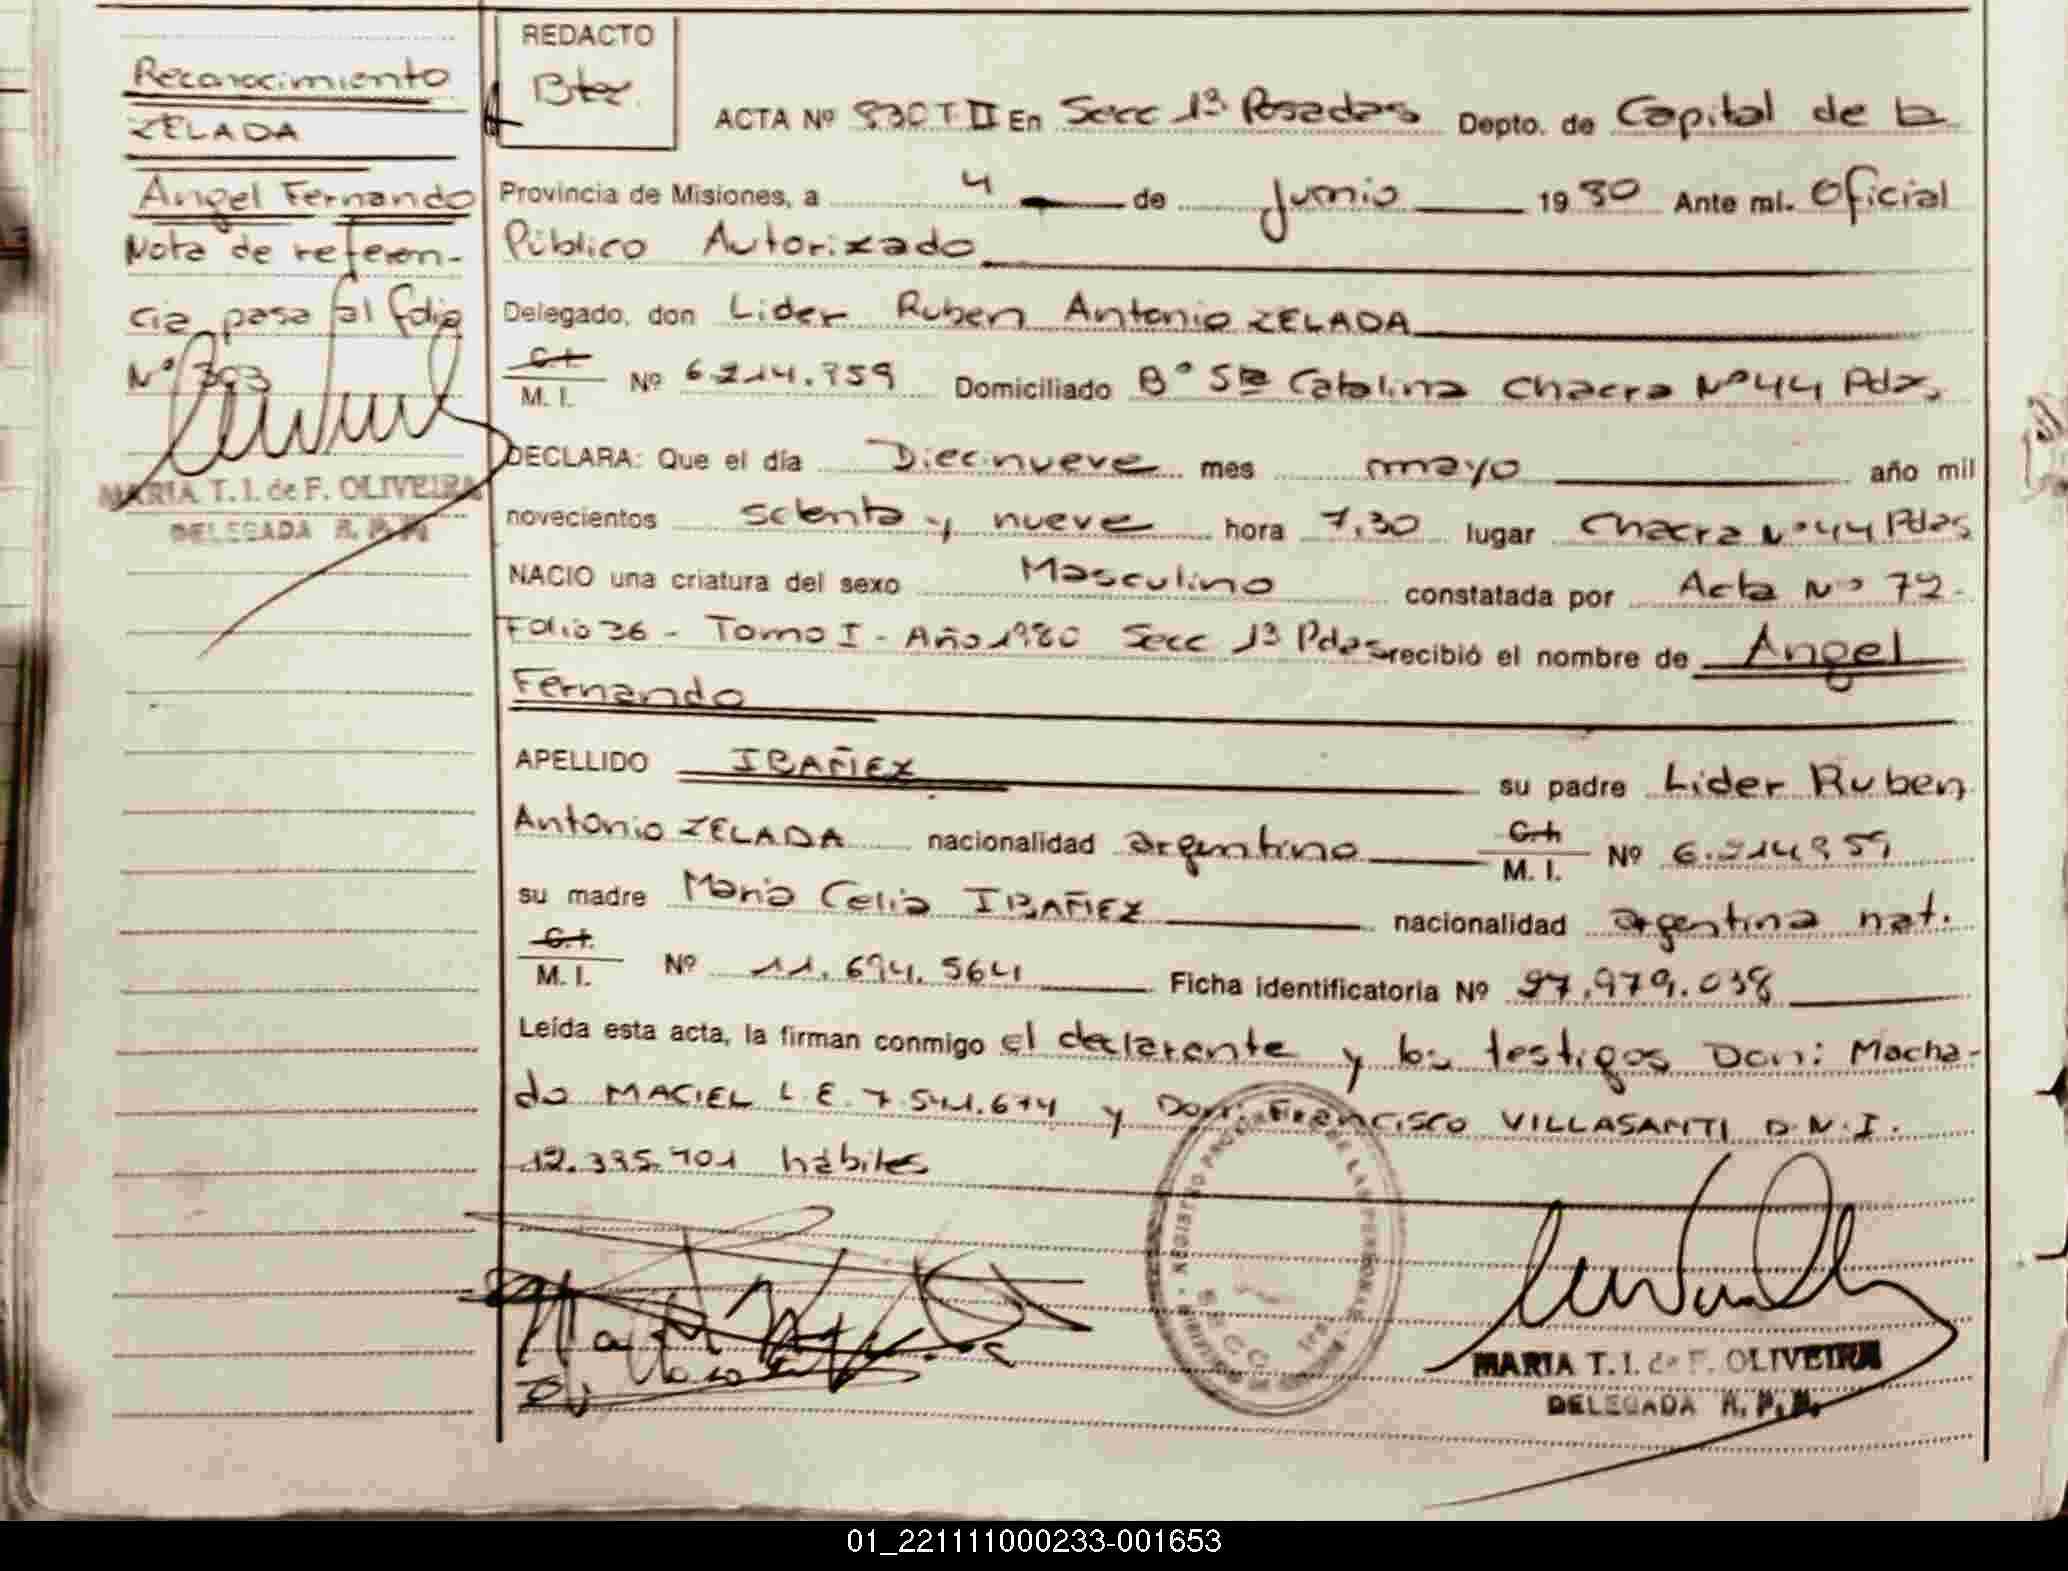 Reconocimiento
ZELADA
Angel Fernando
Nota de referen-
cia pasa al folio
Nº 393
MARIA T. I. de F. OLIVEIRA
DELEGADA R. P. P.
REDACTO
ACTA Nº 830 T II En Secc 1ª Posadas Depto. de Capital de la
Provincia de Misiones, a 4 de Junio 1980 Ante mí. Oficial
Público Autorizado
Delegado, don Lider Ruben Antonio ZELADA
C.I.
M. I. Nº 6.214.959 Domiciliado Bº Sta Catalina Chacra Nº 44 Pdas.
DECLARA: Que el día Diecinueve mes mayo año mil
novecientos setenta y nueve hora 7,30 lugar Chacra Nº 44 Pdas
NACIO una criatura del sexo Masculino constatada por Acta Nº 72-
Folio 36 - Tomo I - Año 1980 Secc 1ª Pdas recibió el nombre de Angel
Fernando
APELLIDO IBAÑEZ su padre Lider Ruben
Antonio ZELADA nacionalidad argentino C.I. M. I. Nº 6.214.959
su madre Maria Celia IBAÑEZ nacionalidad argentina nat.
C.I.
M. I. Nº 11.694.564 Ficha identificatoria Nº 27.979.038
Leída esta acta, la firman conmigo el declarante y los testigos Don: Macha-
do MACIEL L.E. 7.541.674 y Don: Francisco VILLASANTI D.N.I.
12.335.701 hábiles
MARIA T. I. de F. OLIVEIRA
DELEGADA R. P. P.
01_221111000233-001653